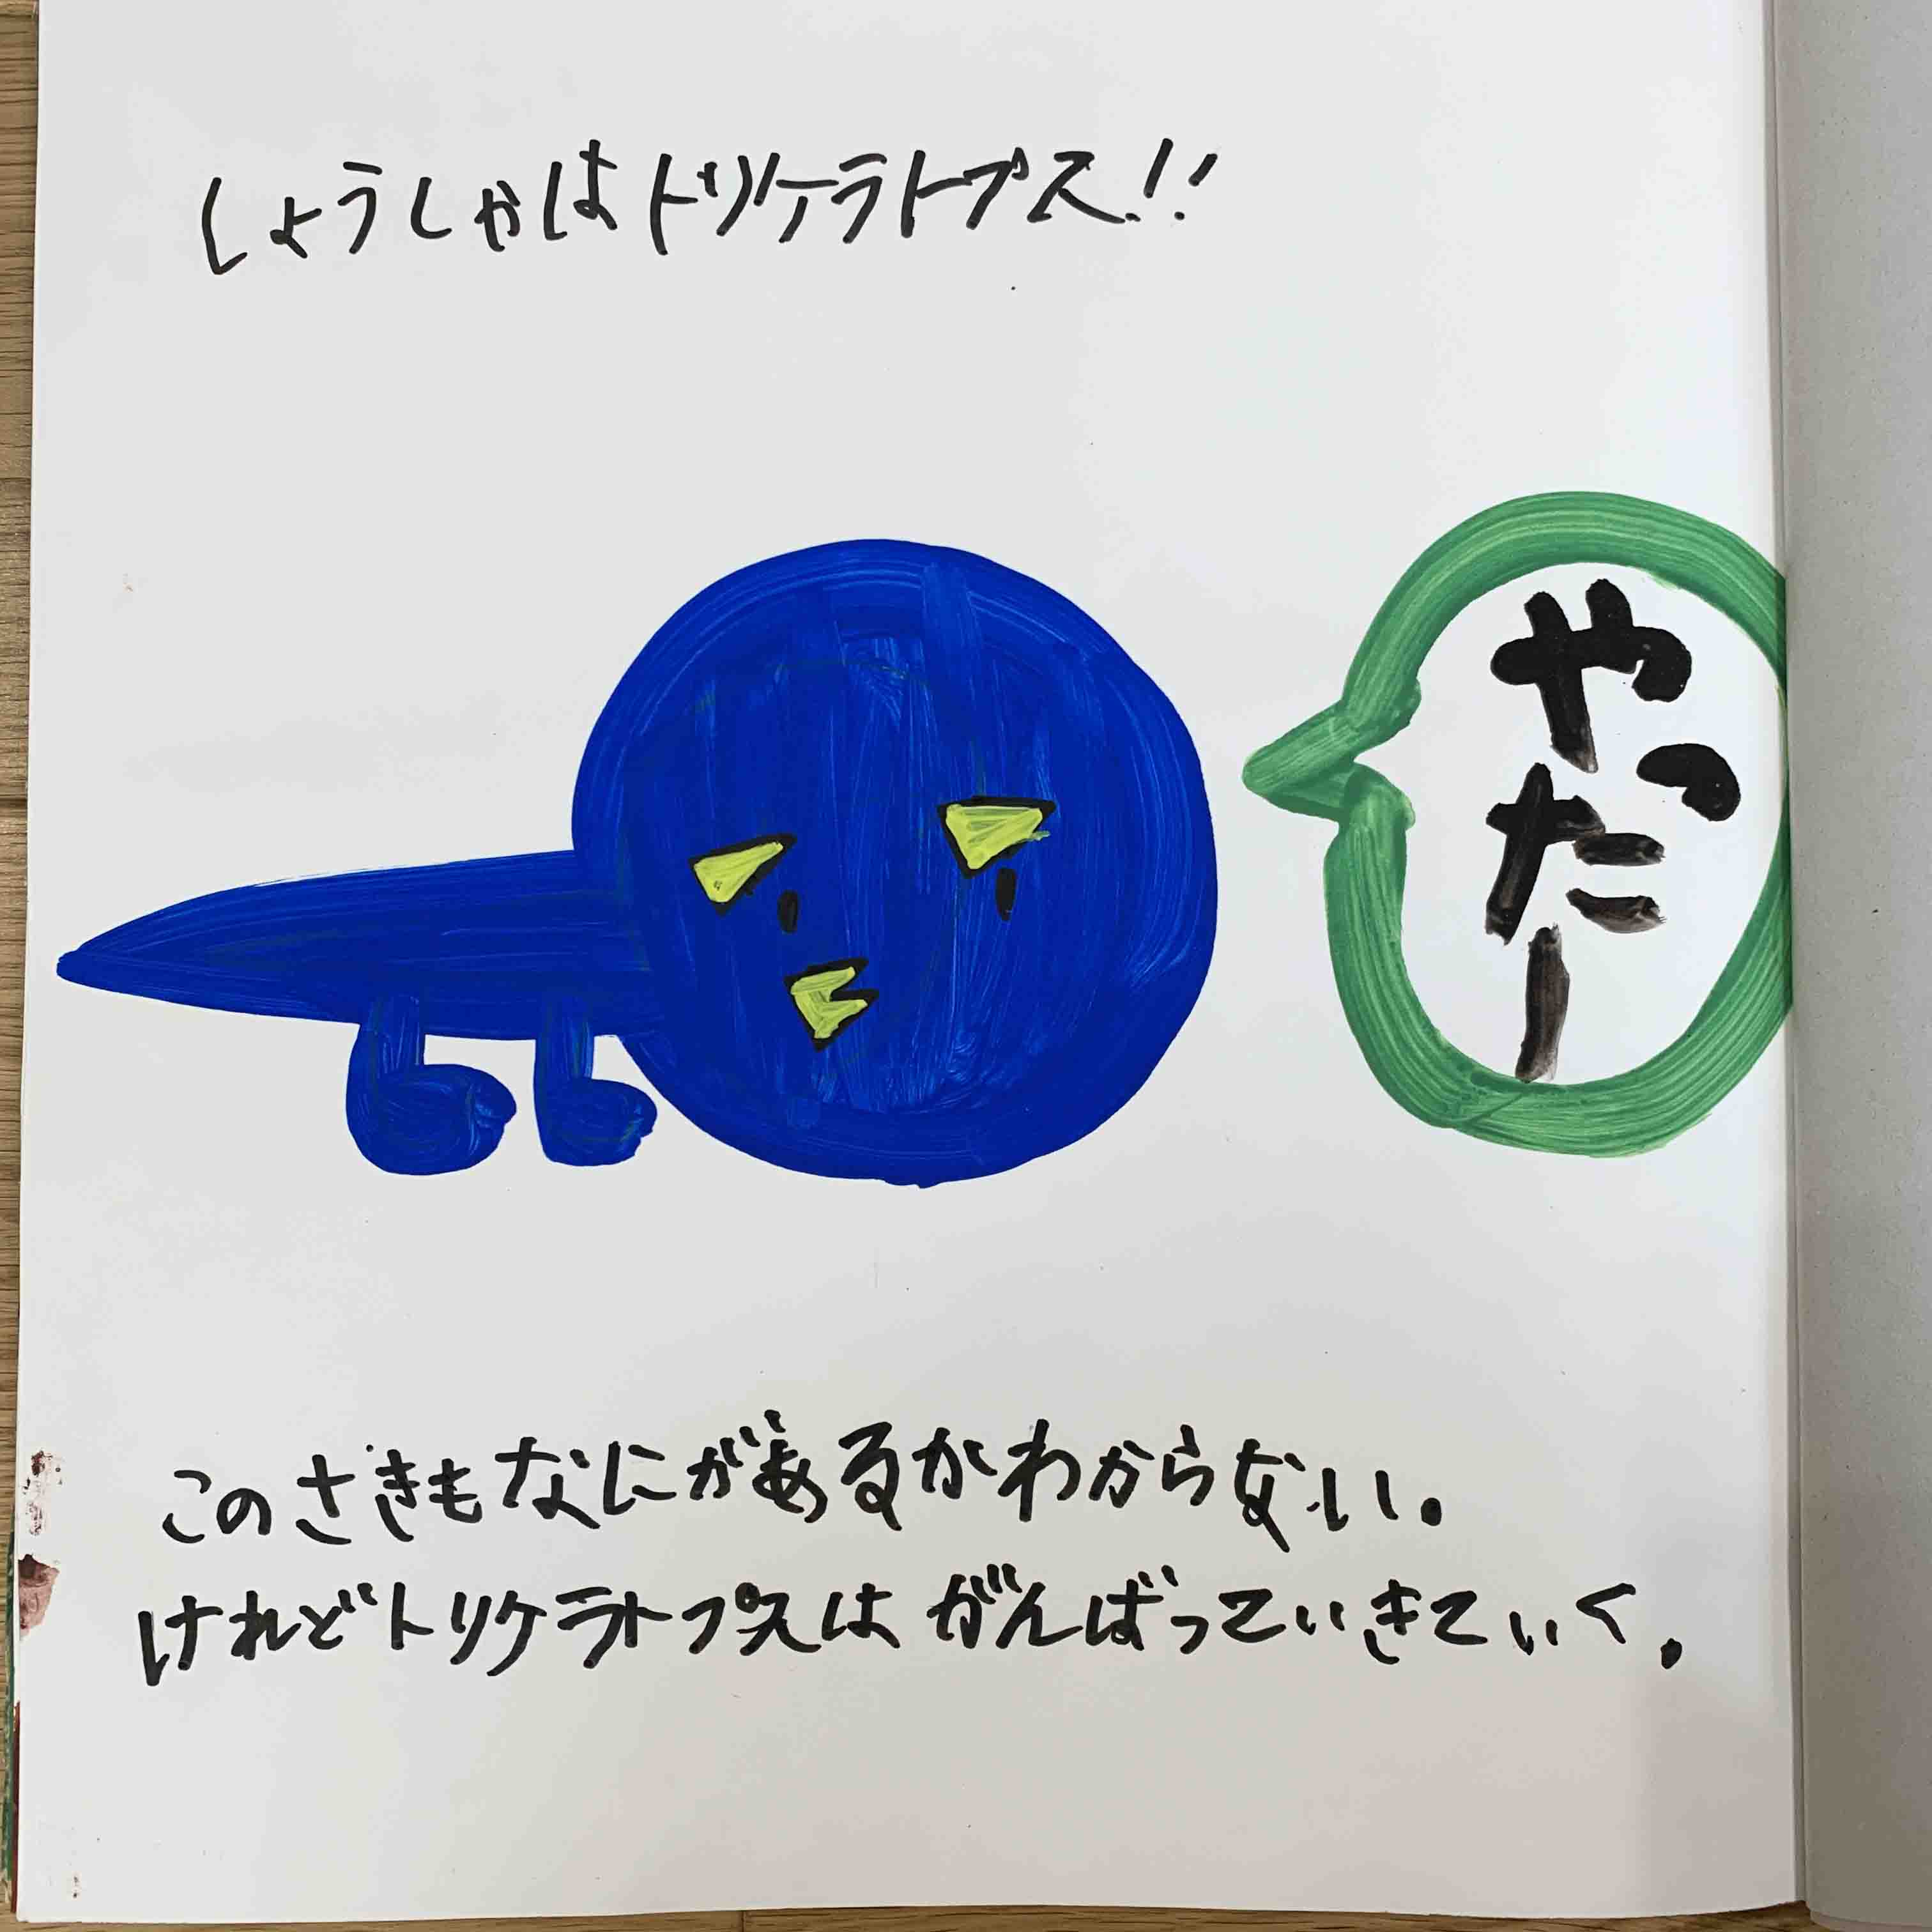 しょうしゃはトリケラトプス!!
やっ
たー
このさきもなにがあるかわからない。
けれどトリケラトプスはがんばっていきていく。